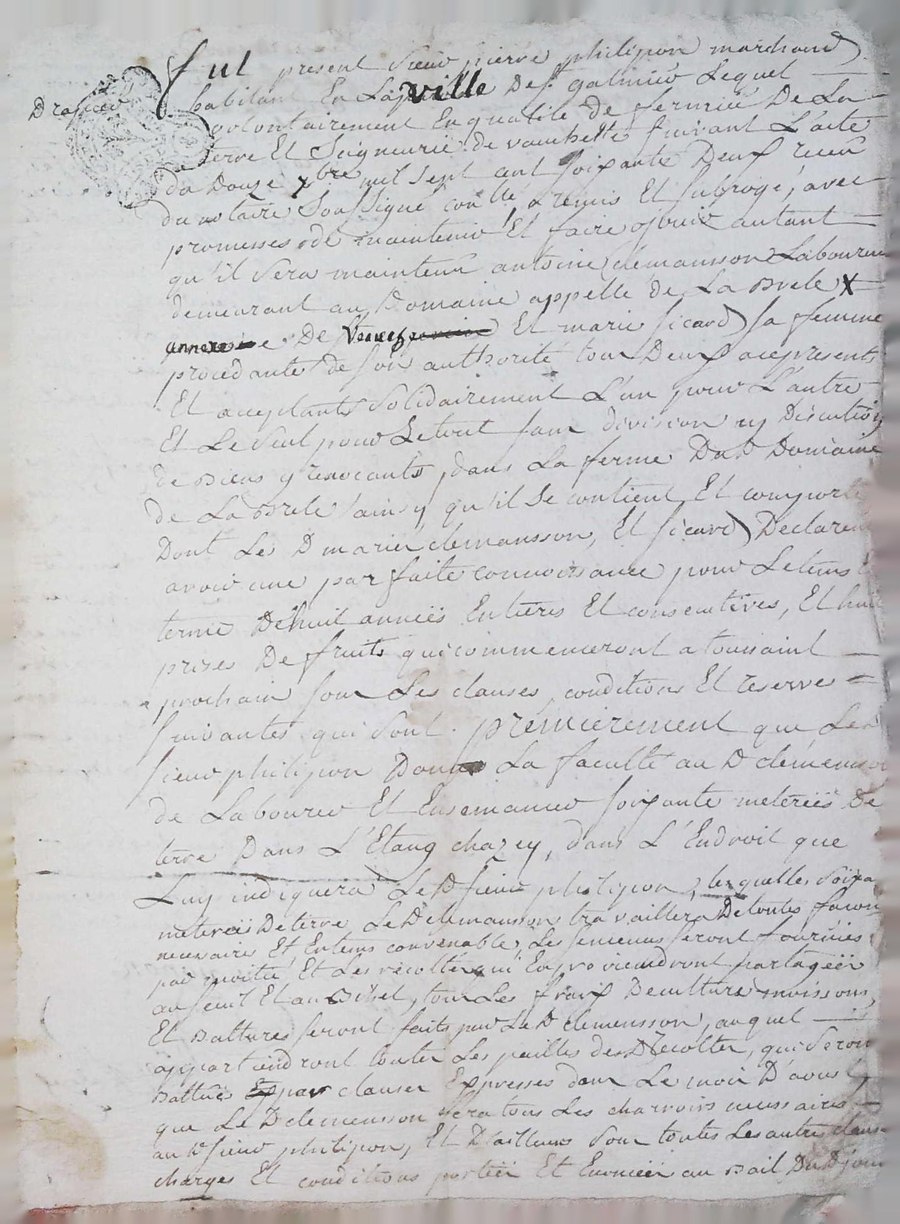 fut present sieur pierre philipon marchand
habitant En La ville De st galmier Lequel
volontairement En qualité de fermier De La
terre Et Seigneurie de vauchette suivant L'acte
du Douze 7bre mil sept cent soixante Deux receu
du notaire Soussigné a remis Et subrogé, avec
promesses de maintenir Et faire jouir autant
qu'il Sera maintenu antoine clemansson Laboureur
demeurant au Domaine appellé de La Brele X
De Et marie sicard sa femme
procédante de son authorité tous Deux acy presents
Et acceptants Solidairement L'un pour L'autre
Et Le Seul pour Le tout sans division ny Discution
De Biens y renoncants, dans La ferme Dud Domaine
de La Brele ainsy qu'il Se contient Et comporte
Dont Les D mariés clemansson, Et sicard Declarent
avoir une parfaite connoissance pour Le tems Et
terme De huit années Entieres Et consecutives, Et huit
prises De fruits qui commenceront a toussaint
prochain sous Les clauses, conditions Et reserve
suivantes qui sont. premierement que Led
sieur philipon Donne La faculté au D clémensson
de Labourer Et Ensemancer soixante meterées De
terre Dans L'Etang chazey, dans L'Endroit que
Luy indiquera Le D sieur philipon, les quelles soixante
meterées De terre Le D clemansson travaillera De toutes facons
necessaire Et, En tems convenable, Les semences seront fournies
par moitié Et Les récoltes qui En proviendront partagées
au seuil Et au Bihet, tous Les fraix De culture moissons,
Et Battures seront faits par Le D clemensson, auquel
appartiendront toutes Les pailles des Recoltes, qui Seront
Battues par clauses Expresses dans Le mois D'aoust
que Le D clemensson fera tous Les charrois necessaires
au D sieur philipon, Et D'ailleurs Sous toutes Les autres clauses
charges Et conditions portées Et Enoncées au Bail Dud jour